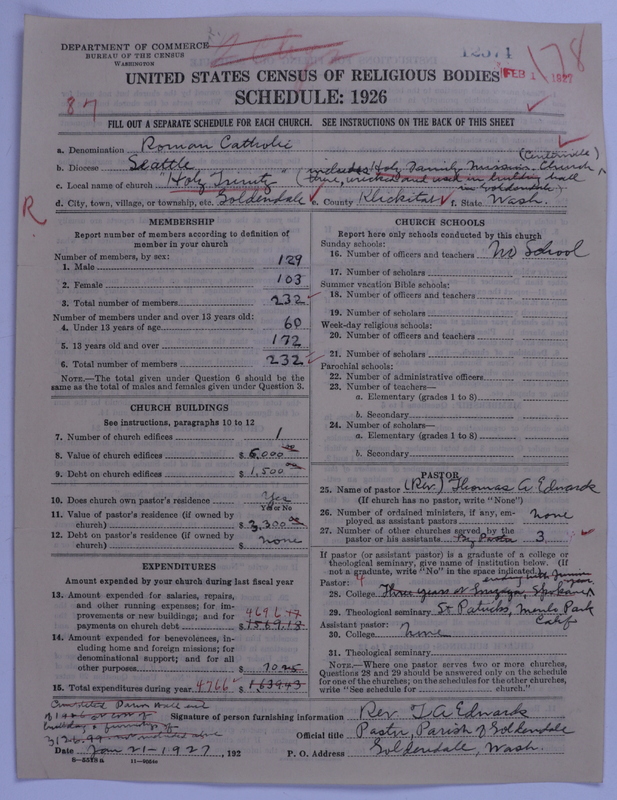 DEPARTMENT OF COMMERCE
BUREAU OF THE CENSUS
WASHINGTON
12371
178
FEB 1 1927
UNITED STATES CENSUS OF RELIGIOUS BODIES
SCHEDULE: 1926
87
FILL OUT A SEPARATE SCHEDULE FOR EACH CHURCH. SEE INSTRUCTIONS ON THE BACK OF THIS SHEET
a. Denomination Roman Catholic
(Centerville)
b. Diocese Seattle (includes Holy Family Mission Church
c. Local name of church "Holy Trinity" and used in building hall
in Goldendale)
d. City, town, village, or township, etc. Goldendale e. County Klickitat f. State Wash.
R
MEMBERSHIP
Report number of members according to definition of member in your church
Number of members, by sex:
1. Male 129
2. Female 103
3. Total number of members 232
Number of members under and over 13 years old:
4. Under 13 years of age 60
5. 13 years old and over 172
6. Total number of members 232
NOTE.—The total given under Question 6 should be the
same as the total of males and females given under Question 3.
CHURCH BUILDINGS
See instructions, paragraphs 10 to 12
7. Number of church edifices 1
8. Value of church edifices $ 6,000 00
9. Debt on church edifices $ 1,500 00
10. Does church own pastor's residence Yes
Yes or No
11. Value of pastor's residence (if owned by
church) $ 3,300 00
12. Debt on pastor's residence (if owned by
church) $ none
EXPENDITURES
Amount expended by your church during last fiscal year
13. Amount expended for salaries, repairs,
and other running expenses; for im-
provements or new buildings; and for 4696 17
payments on church debt $ 1569.18
14. Amount expended for benevolences, in-
cluding home and foreign missions; for
denominational support; and for all
other purposes $ 70.25
15. Total expenditures during year 4766 $ 1,639 43
CHURCH SCHOOLS
Report here only schools conducted by this church
Sunday schools:
16. Number of officers and teachers No School
17. Number of scholars
Summer vacation Bible schools:
18. Number of officers and teachers
19. Number of scholars
Week-day religious schools:
20. Number of officers and teachers
21. Number of scholars
Parochial schools:
22. Number of administrative officers
23. Number of teachers—
a. Elementary (grades 1 to 8)
b. Secondary
24. Number of scholars—
a. Elementary (grades 1 to 8)
b. Secondary
PASTOR
25. Name of pastor (Rev.) Thomas A Edwards
(If church has no pastor, write "None")
26. Number of ordained ministers, if any, em-
ployed as assistant pastors none
27. Number of other churches served by the
pastor or his assistants By Pastor 3
If pastor (or assistant pastor) is a graduate of a college or
theological seminary, give name of institution below. (If
not a graduate, write "No" in the space indicated.)
ending with Junior year
Pastor: 4
28. College Three years at Gonzaga, Spokane
29. Theological seminary St Patricks, Menlo Park
Calif
Assistant pastor:
30. College none
31. Theological seminary
NOTE.—Where one pastor serves two or more churches,
Questions 28 and 29 should be answered only on the schedule
for one of the churches; on the schedules for the other churches,
write "See schedule for church."
Completed Parish Hall end
of 1926 at cost of
building & furniture of
3126.99 not included above
Signature of person furnishing information Rev. T A Edwards
Official title Pastor, Parish of Goldendale
Date Jan 21-1927, 192
P. O. Address Goldendale, Wash.
8—5519 a 11—9054a